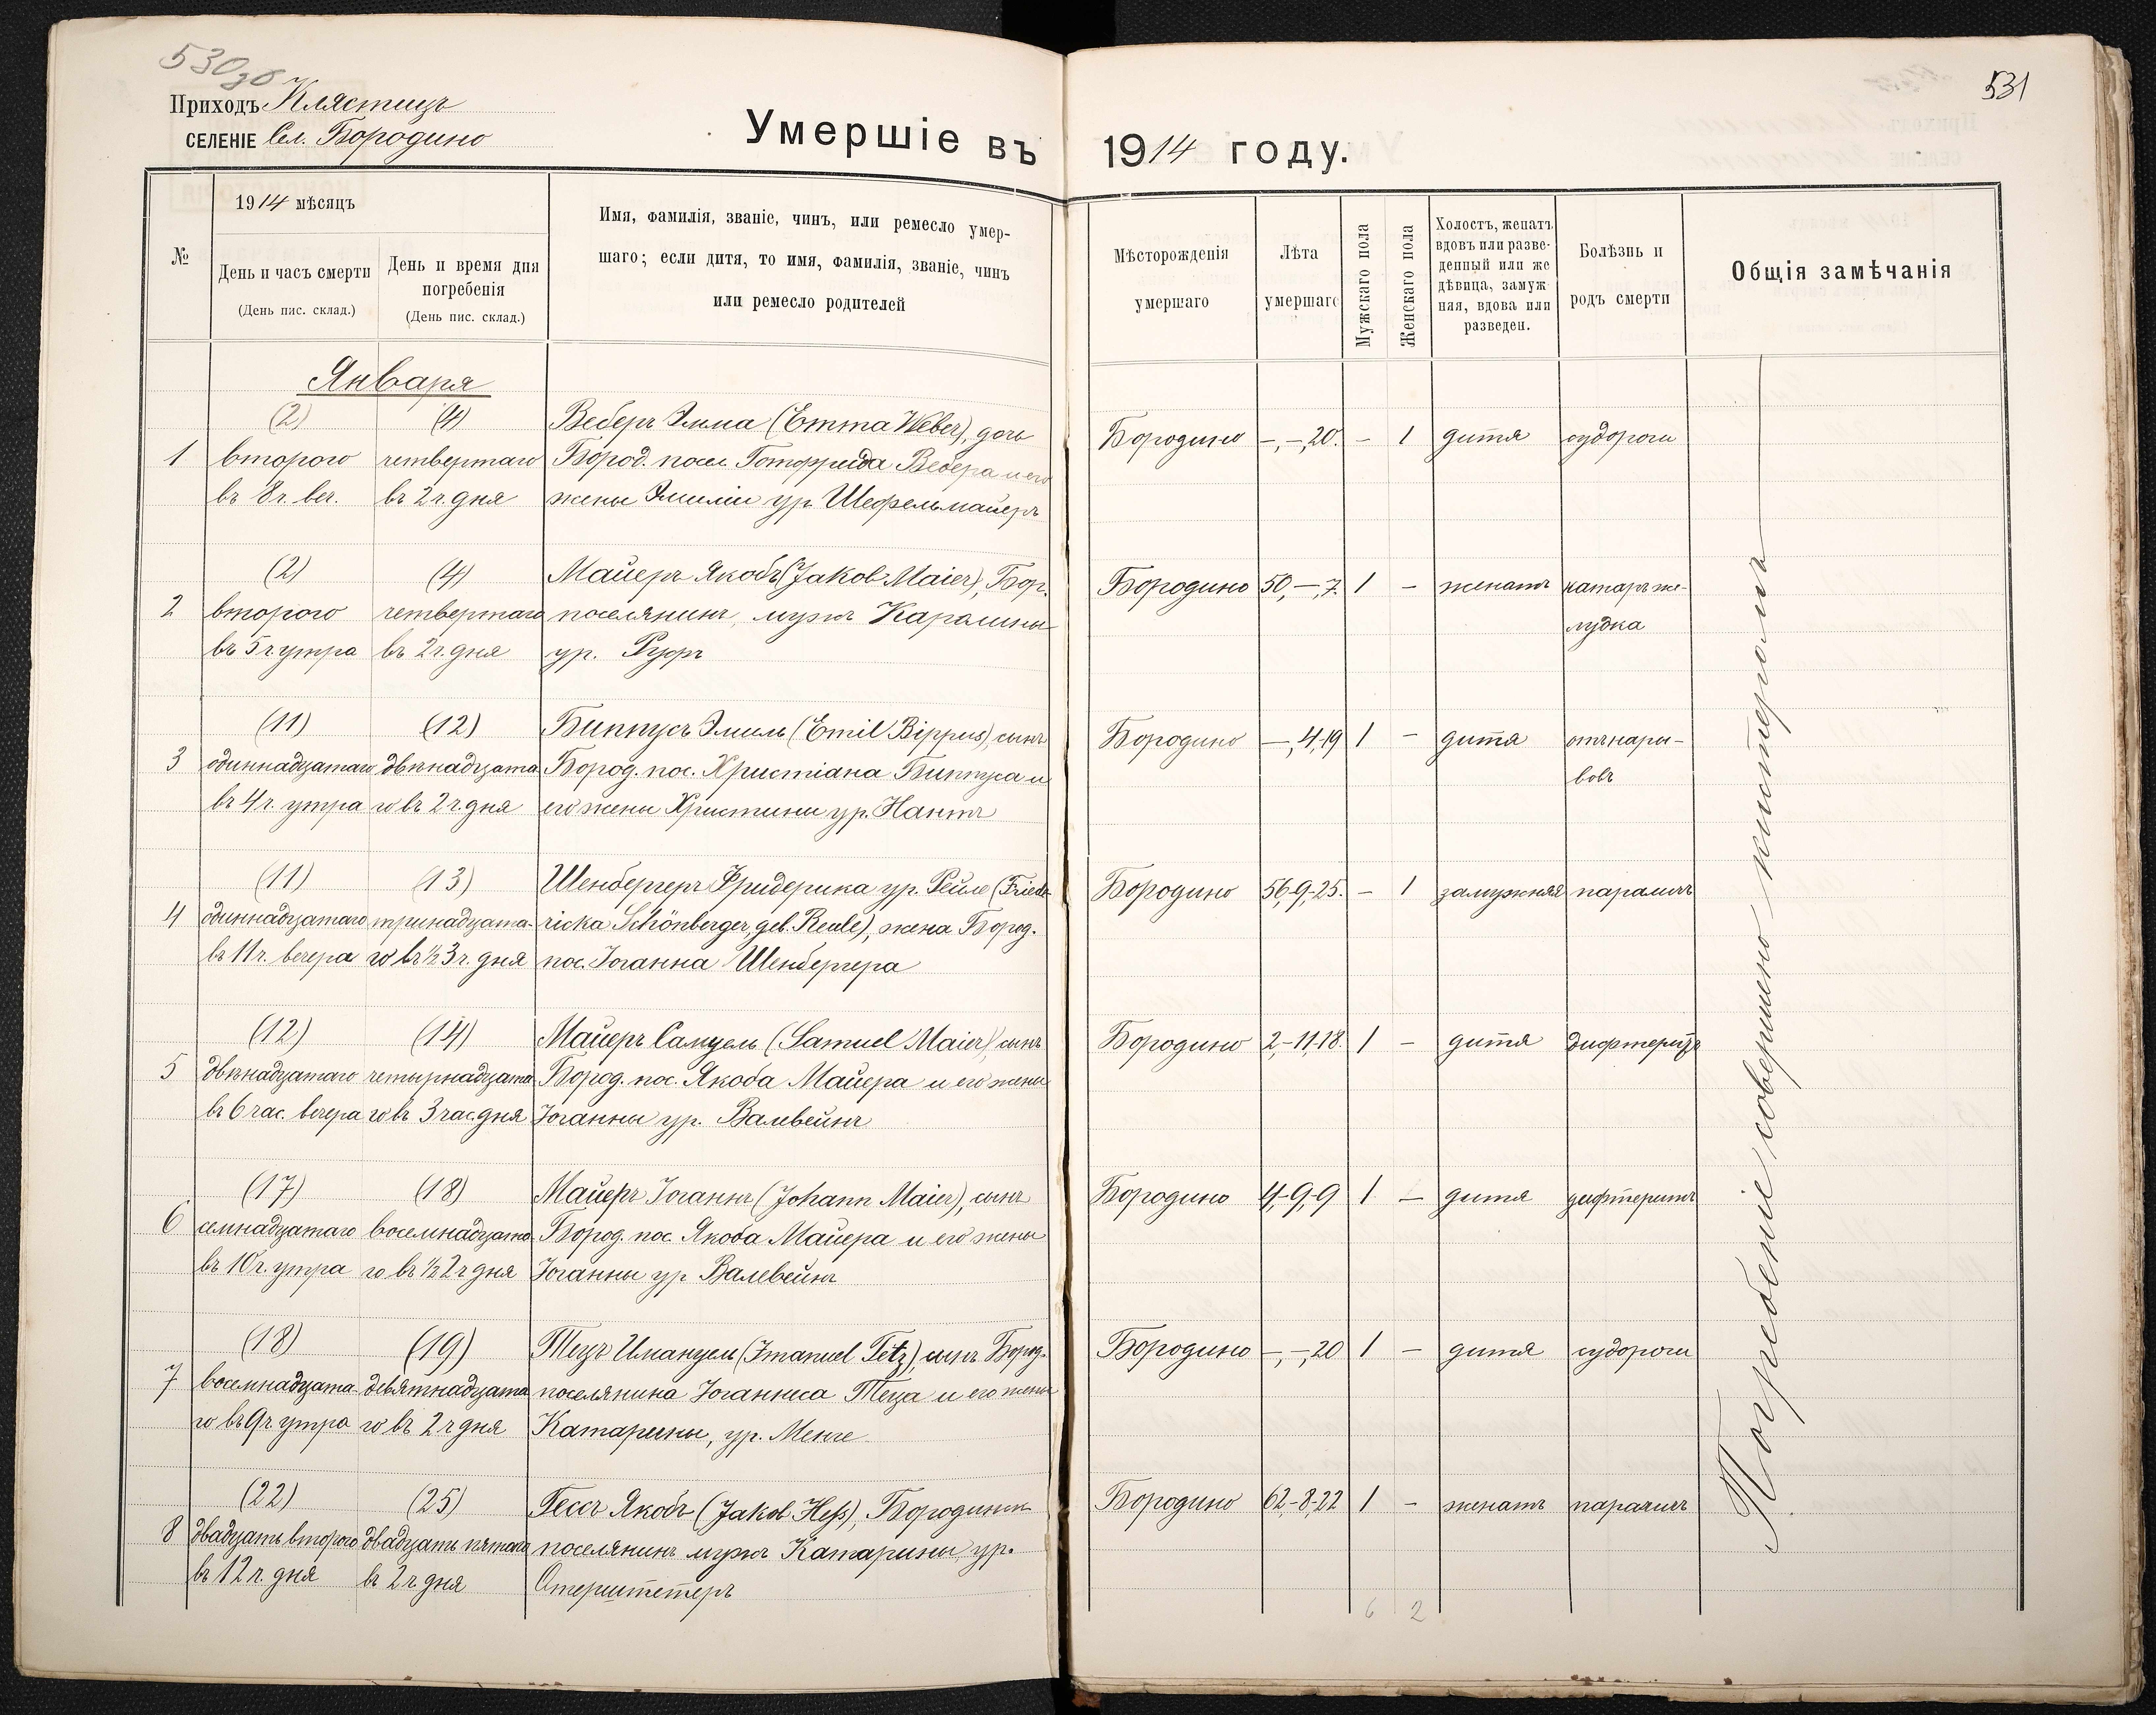 530 об
Приходъ Клястицъ
СЕЛЕНІЕ Сел. Бородино
Умершіе въ
№
1914 мѣсяцъ
День и часъ смерти
(День пис. склад.)
День и время дня
погребенія
(День пис. склад.)
Имя, фамилія, званіе, чинъ, или ремесло умер-
шаго; если дитя, то имя, фамилія, званіе, чинъ
или ремесло родителей
Января
(2) (4) Веберъ Эмма (Emma Weber), дочь
1 второго четвертаго Бород. посел. Готфрида Вебера и его
въ 8 ч. веч. въ 2 ч. дня жены Эмиліи ур. Шефельмайеръ
(2) (4) Майеръ Якобъ (Jakob Maier), Бор.
2 второго четвертаго поселянинъ, мужъ Каролины
въ 5 ч. утра въ 2 ч. дня ур. Руфъ
(11) (12) Биппусъ Эмиль (Emil Bippus), сынъ
3 одиннадцатаго двѣнадцата Бород. пос. Христіана Биппуса и
въ 4 ч. утра го въ 2 ч. дня его жены Христины ур. Нантъ
(11) (13) Шенбергеръ Фридерика ур. Рейле (Friede-
4 одиннадцатаго тринадцата- ricka Schönberger, geb. Reule), жена Бород.
въ 11 ч. вечера го въ ½ 3 ч. дня пос. Іоганна Шенбергера
(12) (14) Майеръ Самуелъ (Samuel Maier), сынъ
5 двѣнадцатаго четырнадцата Бород. пос. Якоба Майера и его жены
въ 6 час. вечера го въ 3 час. дня Іоганны ур. Валевейнъ
(17) (18) Майеръ Іоганнъ (Johann Maier), сынъ
6 семнадцатаго восемнадцата Бород. пос. Якоба Майера и его жены
въ 10 ч. утра го въ ½ 2 ч дня Іоганны ур Валевейнъ
(18) (19) Тецъ Имануелъ (Imanuel Tetz), сынъ Бород.
7 восемнадцата девятнадцата поселянина Іоганнеса Теца и его жены
го въ 9 ч. утра го въ 2 ч дня Катарины, ур. Менге
(22) (25) Гессъ Якобъ (Jakob Heß), Бородинск
8 двадцать второго двадцать пятаго поселянинъ мужъ Катарины, ур.
въ 12 ч. дня въ 2 ч дня Отерштетеръ
531
1914 году.
Мѣсторожденія
умершаго
Лѣта
умершаго
Мужскаго пола
Женскаго пола
Холостъ, женатъ
вдовъ или разве-
денный или же
дѣвица, замуж
няя, вдова или
разведен.
Болѣзнь и
родъ смерти
Общія замѣчанія
Бородино —,—,20. — 1 дитя судороги
Бородино 50,—,7. 1 — женатъ катаръ же-
лудка
Бородино —,4,19 1 — дитя отъ нары-
вовъ
Бородино 56,9,25. — 1 замужняя параличъ
Бородино 2,-11,18. 1 — дитя дифтеритъ
Бородино 4,-9,9 1 — дитя дифтеритъ
Бородино —,—,20 1 — дитя судороги
Бородино 62,-8,22 1 — женатъ параличъ
6 2
Погребеніе совершено кистеромъ